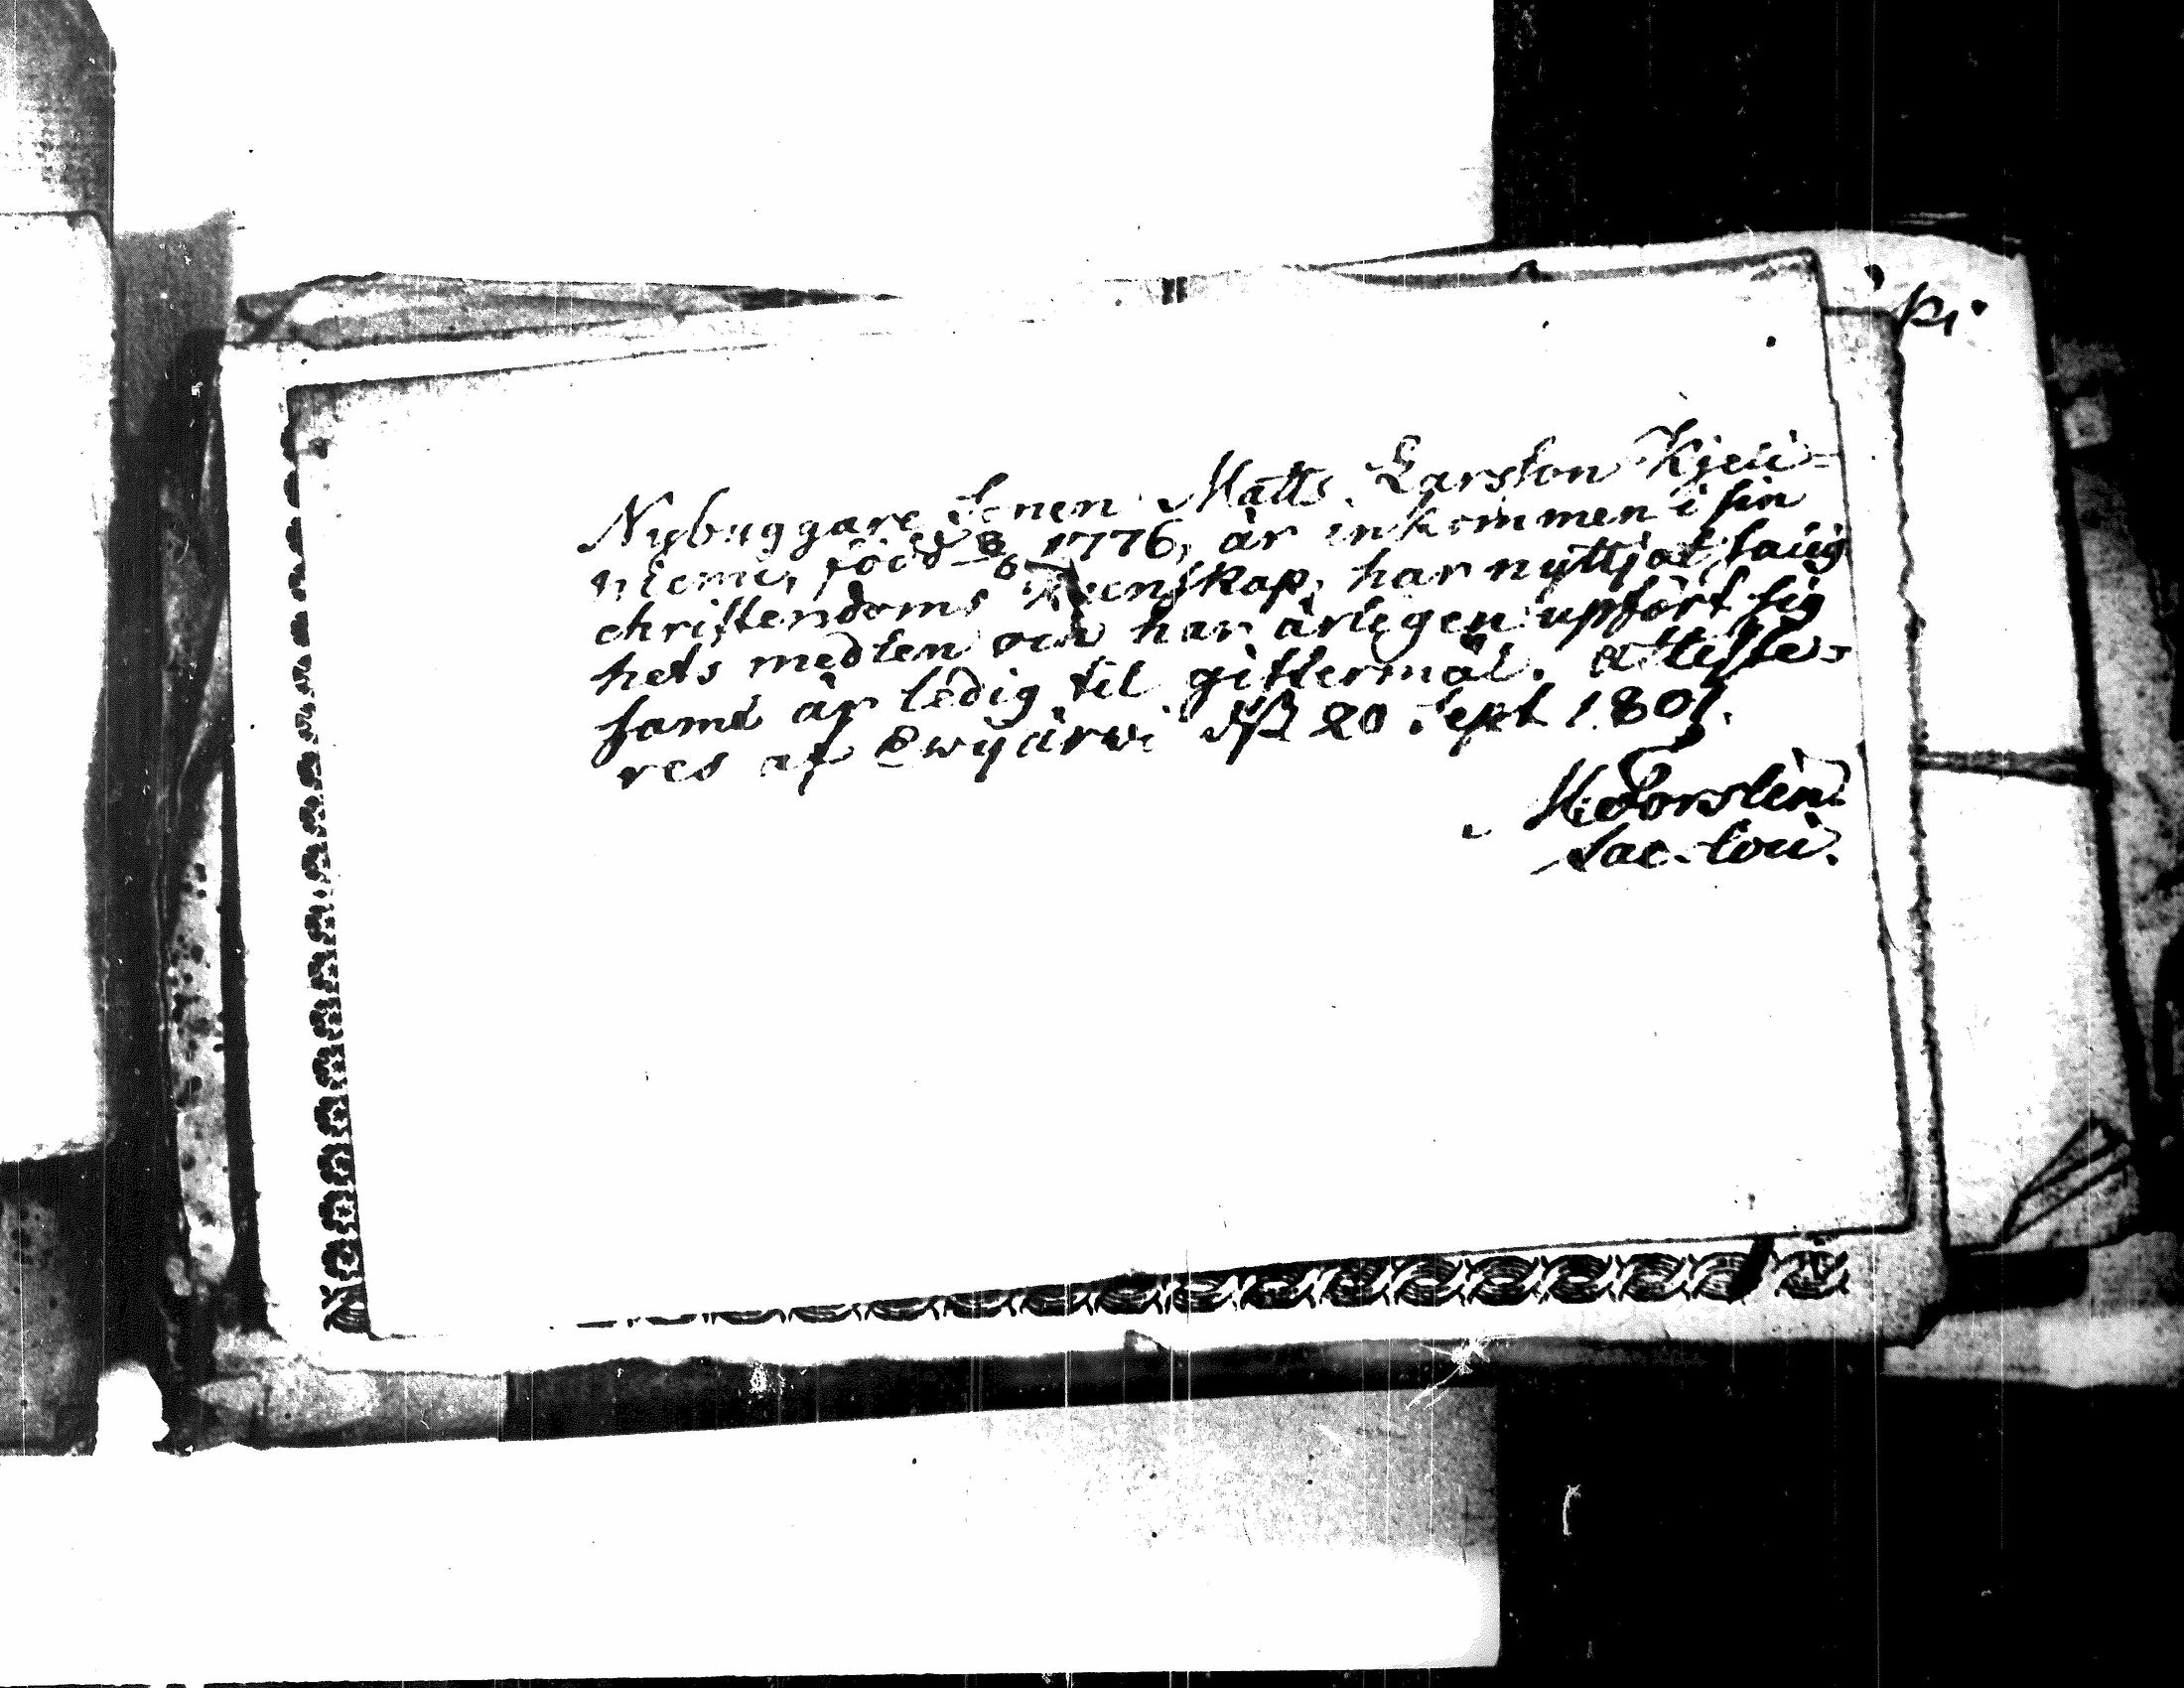 Nybyggare Sonen Matts Larsson Kjeü-
niemi, född 3/6 1776, är inkommen i sin
christendoms kunskap, har nyttjat salig
hets medlen och har ärligen upfört sig
samt är ledig til giftermål. Atteste-
res af Ewijärwi d. 20 Sept 1801.
M: Forslin
Sac.